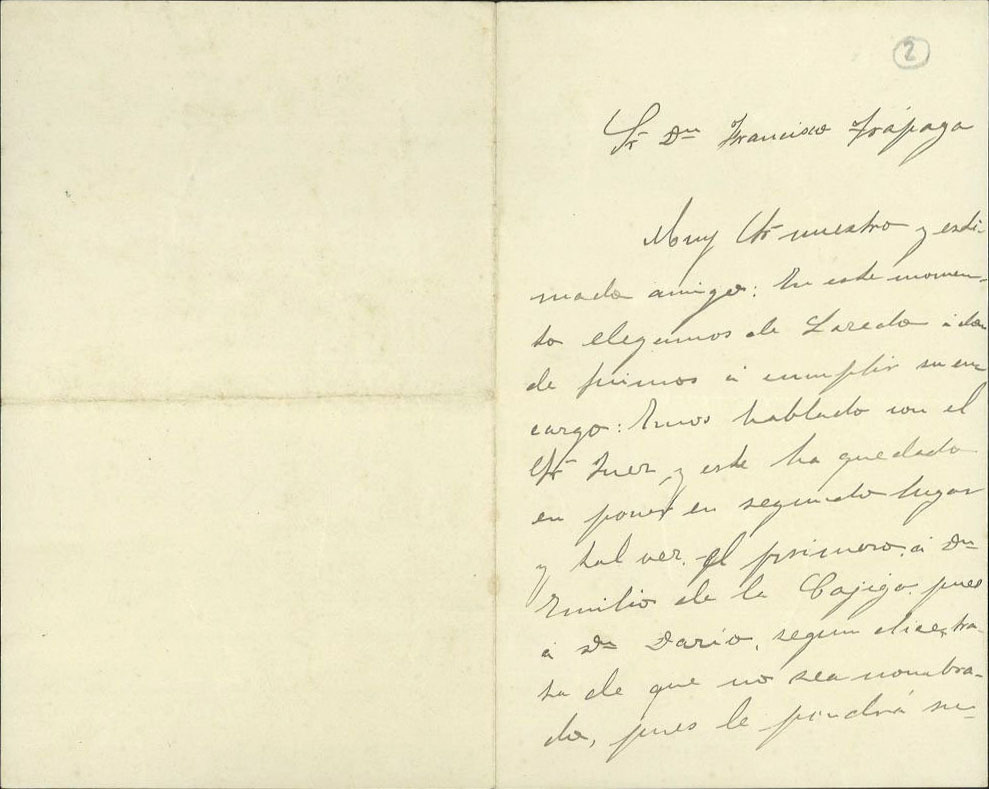 2
Sr Dn Francisco Trápaga
Muy Sr nuestro y esti-
mado amigo: En este momen-
to elegamos de Laredo á don
de fuimos á cumplir su en
cargo: Emos hablado con el
Sr Juez, y este ha quedado
en poner en segundo lugar
y tal vez el primero, á Dn
Emilio de la Cajiga pues
á Dn Dario, segun dice, tra-
ta de que no sea nombra-
do, pues le pondrá en